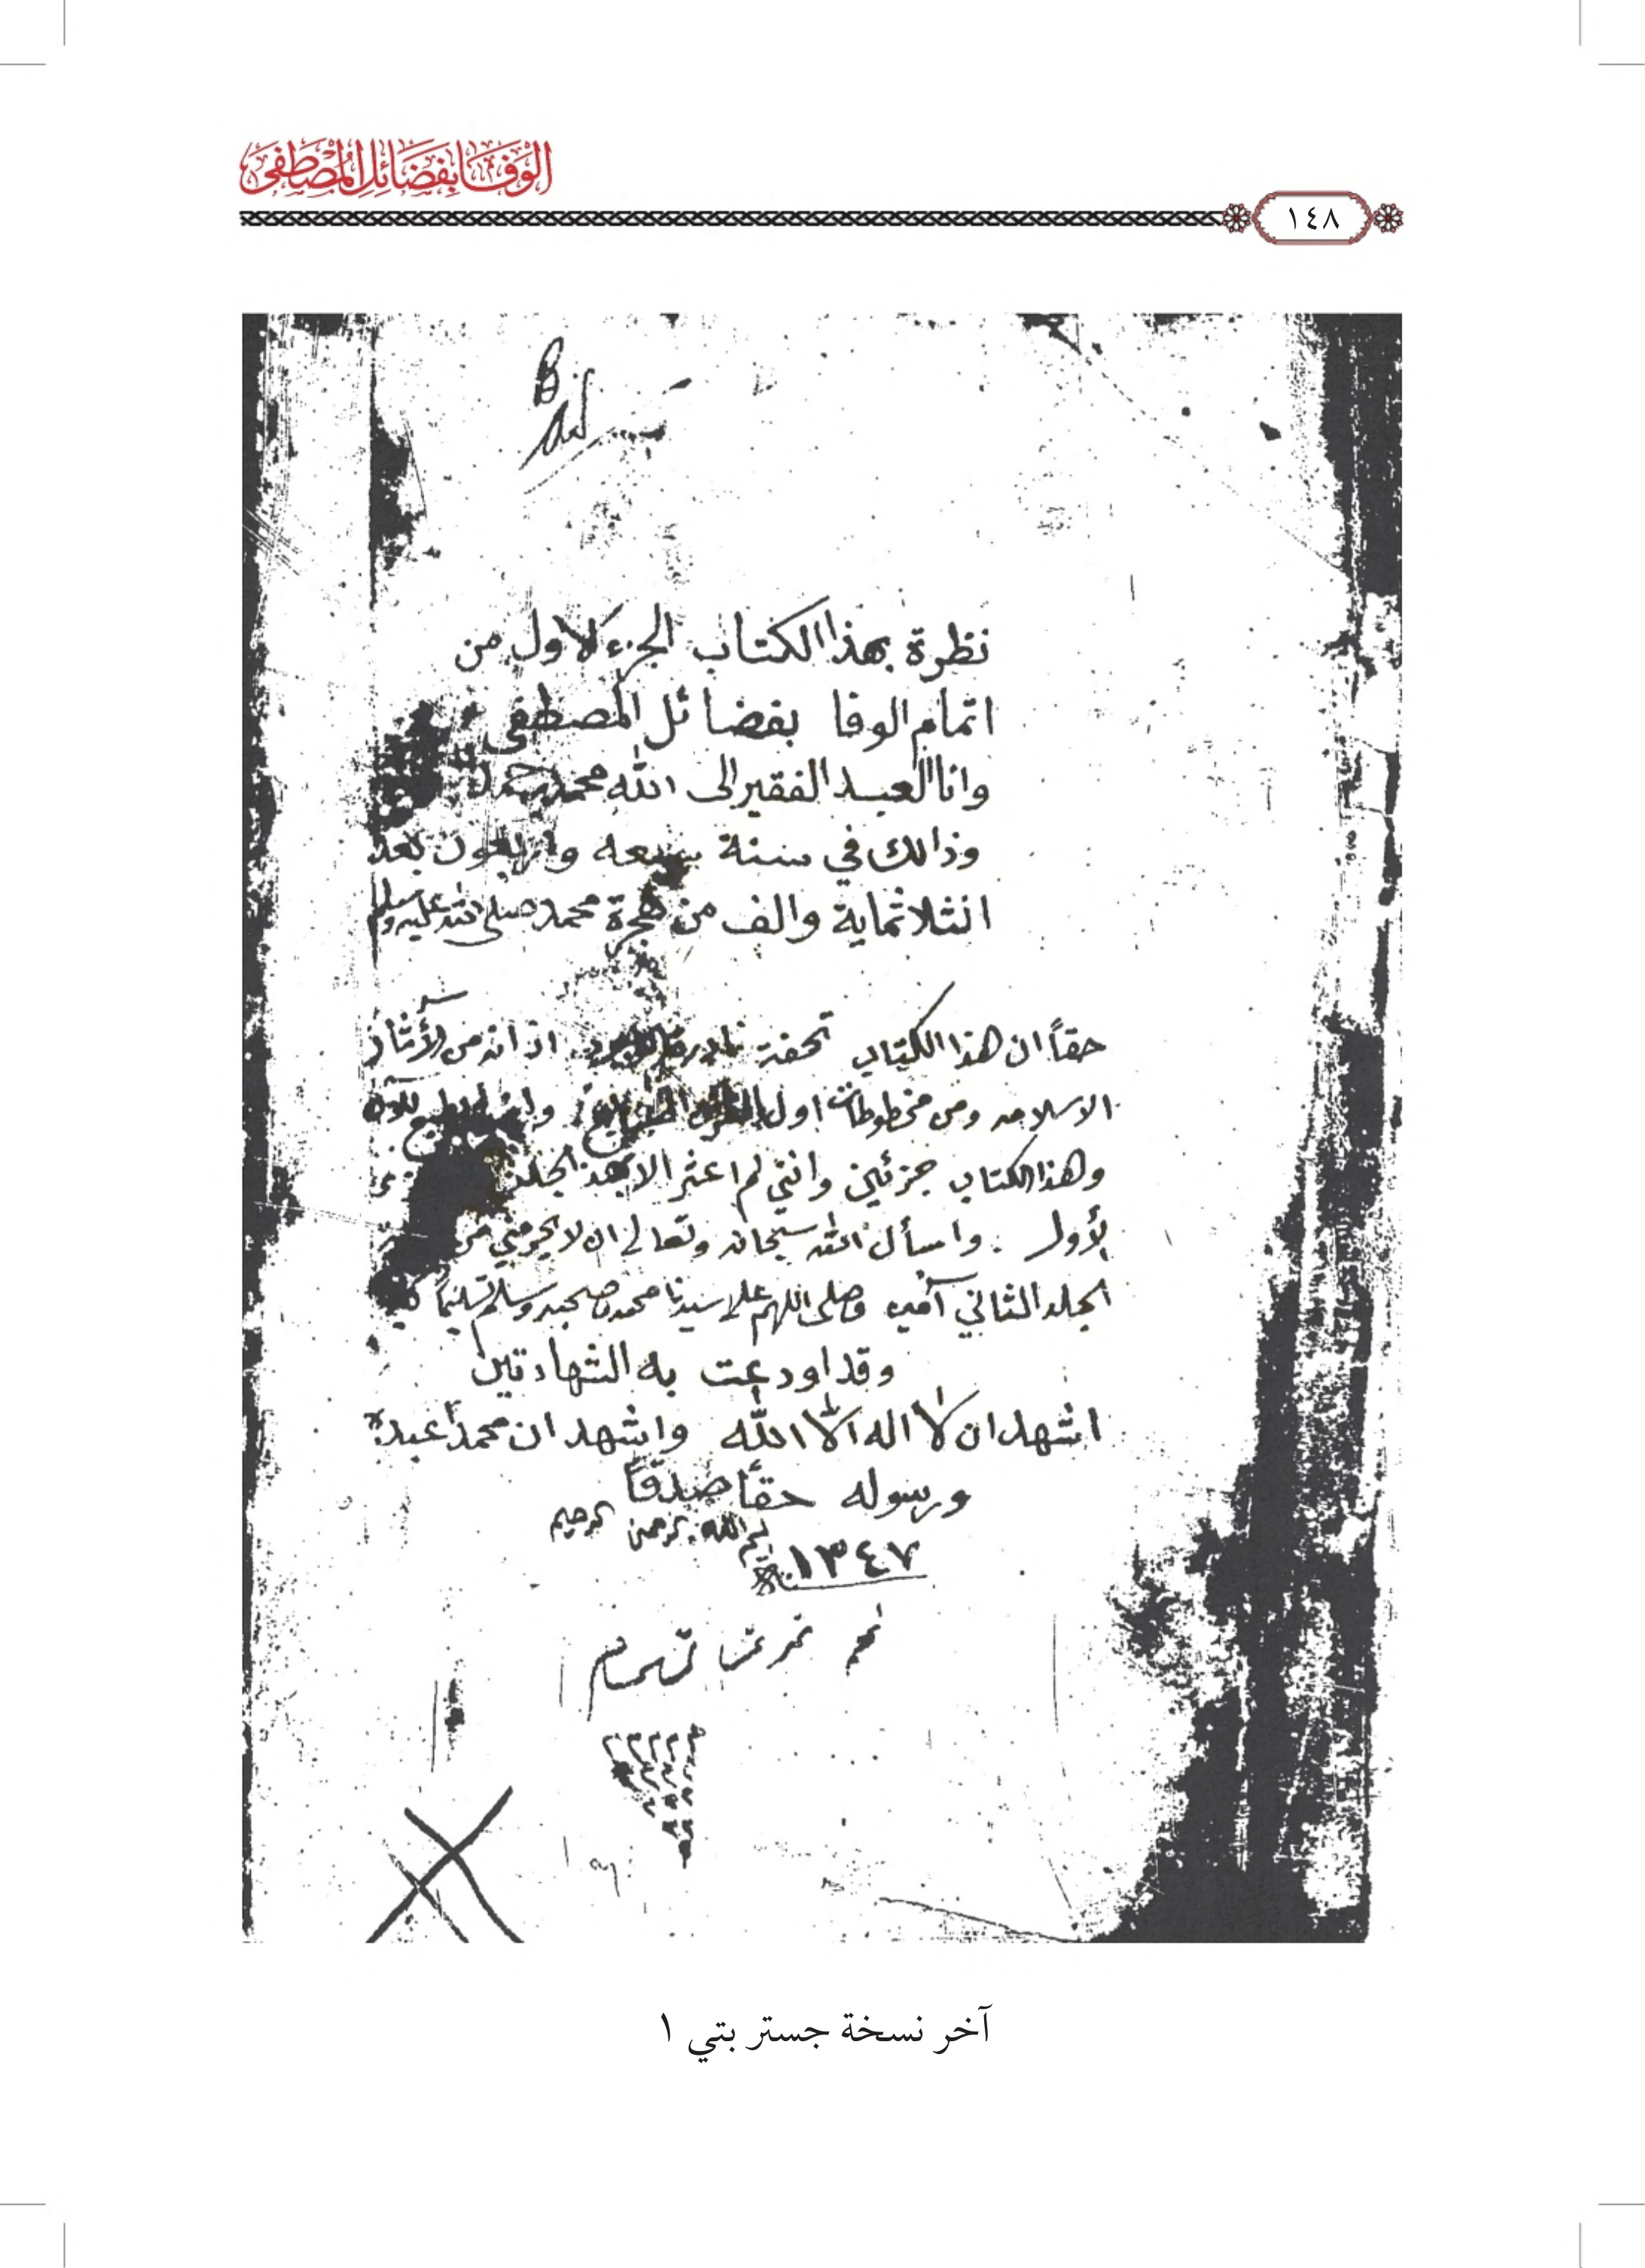 الوفا بفضائل المصطفى
١٤٨
نظرة بهذا الكتاب الجزء الاول من
اتمام الوفا بفضائل المصطفى
وانا العبد الفقير الى الله محمد
وذالك في سنة سبعه واربعون بعد
الثلاثماية والف من هجرة محمد صلى الله عليه وسلم
حقاً ان هذا الكتاب تحفة نادرة اذ انه من الأثار
الاسلاميه ومن مخطوطات اول
وهذا الكتاب جزئين وانني لم اعثر الا بهذا الجلد
الأول . واسأل الله سبحانه وتعالى ان لا يحرمني من
الجلد الثاني آمين وصلى اللهم على سيدنا محمد وصحبه وسلم تسليماً
وقد اودعت به الشهادتين
اشهد ان لا اله الا الله واشهد ان محمداً عبده
ورسوله حقاً صدقاً
بسم الله الرحمن الرحيم
١٣٤٧
آخر نسخة جستر بتي ١